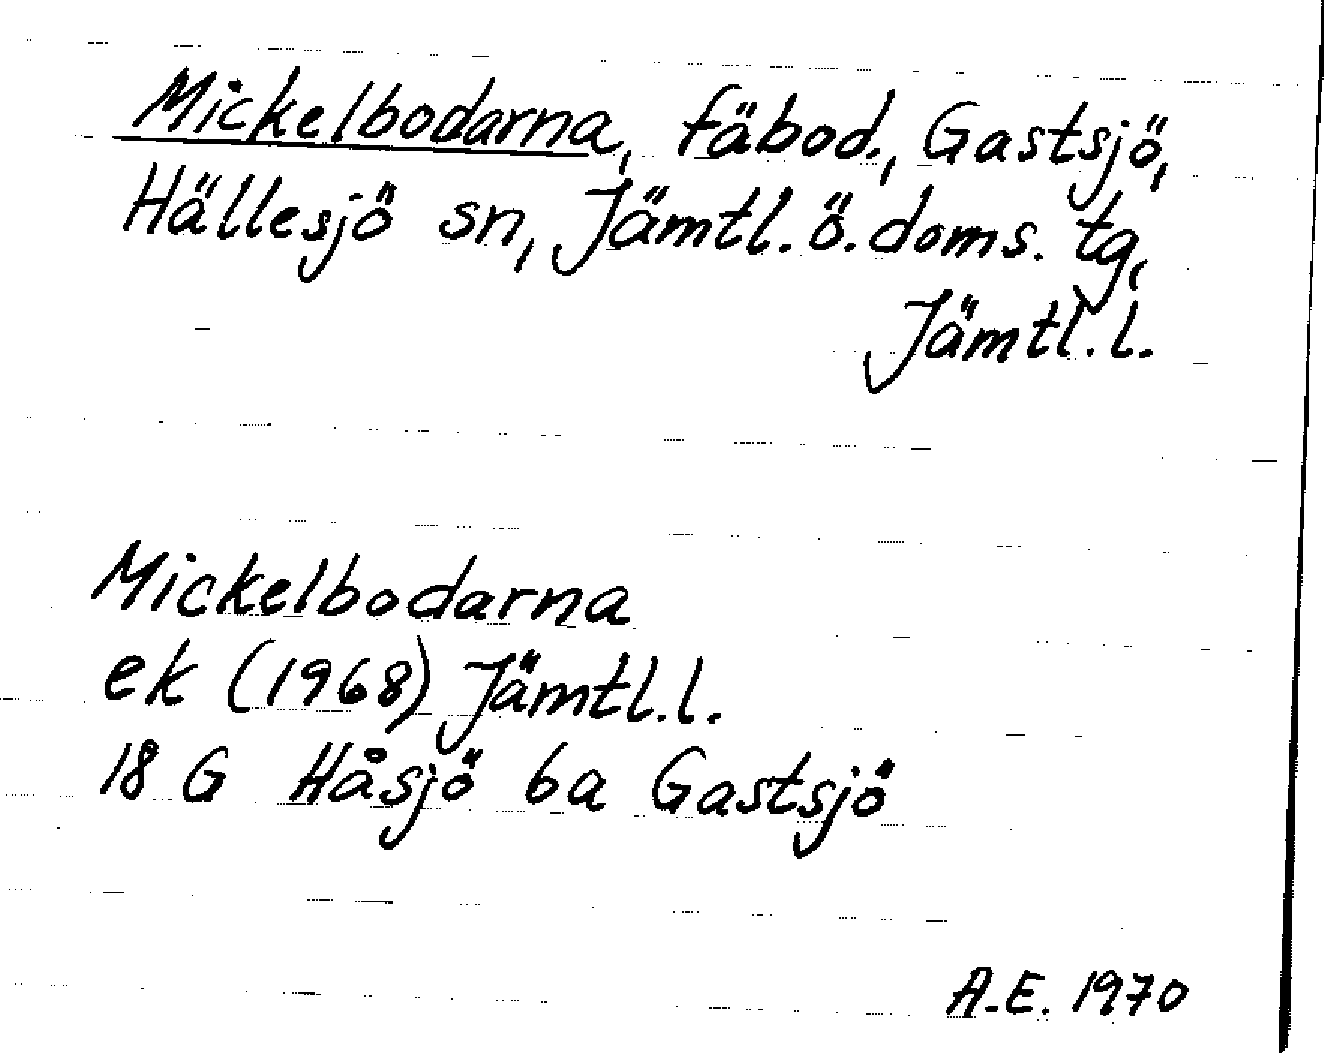 Mickelbodarna, fäbod., Gastsjö,
Hällesjö sn, Jämtl. ö. doms. tg,
Jämtl. l.
Mickelbodarna
ek (1968) Jämtl. l.
18 G Håsjö 6a Gastsjö
A.E. 1970